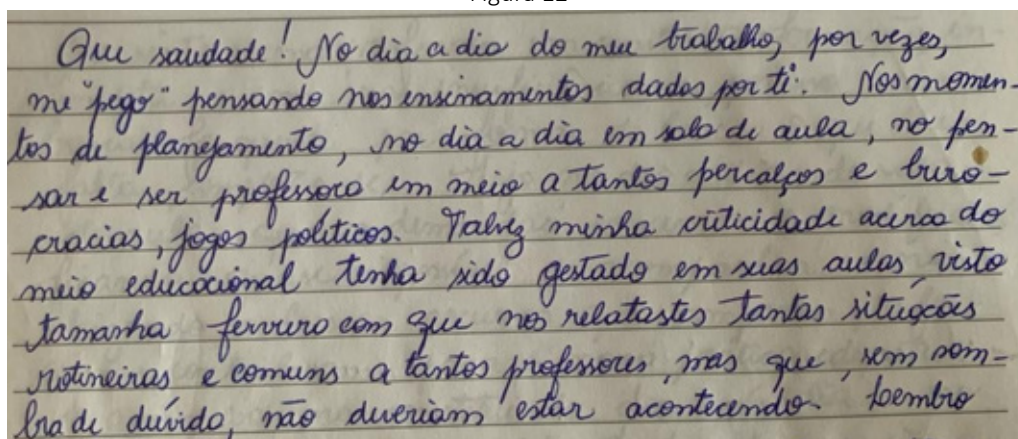 Que saudade! No dia a dia do meu trabalho, por vezes,
me "pego" pensando nos ensinamentos dados por ti. Nos momen-
tos de planejamento, no dia a dia em sala de aula, no pen-
sar e ser professora em meio a tantos percalços e buro-
cracias, jogos políticos. Talvez minha criticidade acerca do
meio educacional tenha sido gestada em suas aulas, visto
tamanha com que nos relatastes tantas situações
rotineiras e comuns a tantos professores, mas que, sem som-
bra de dúvida, não deveriam estar acontecendo. Lembro